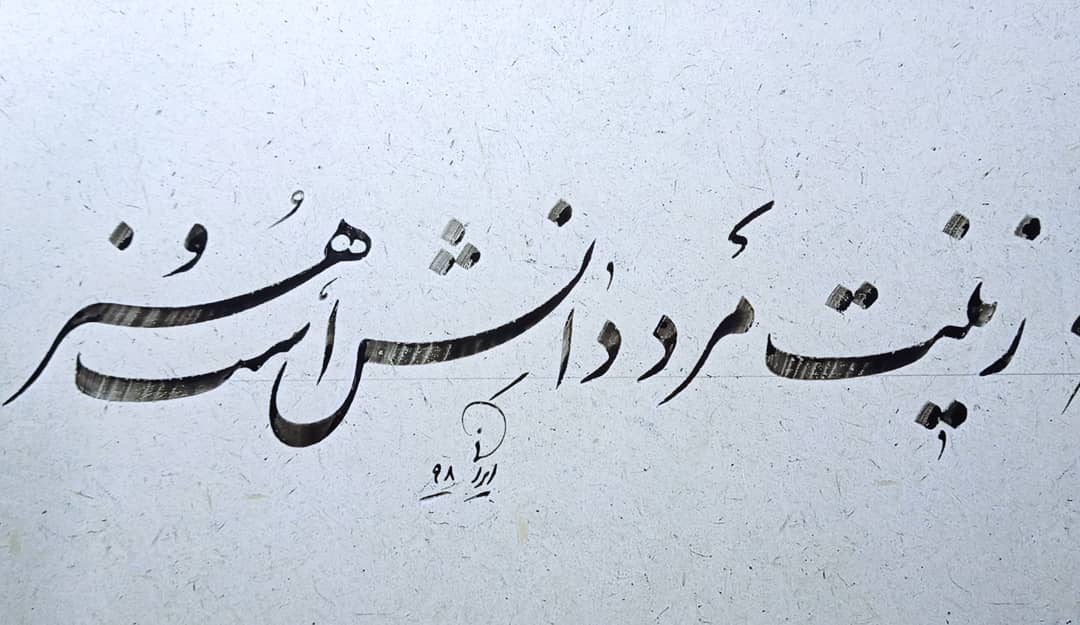 زینت مرد دانش است و هنر
۹۸